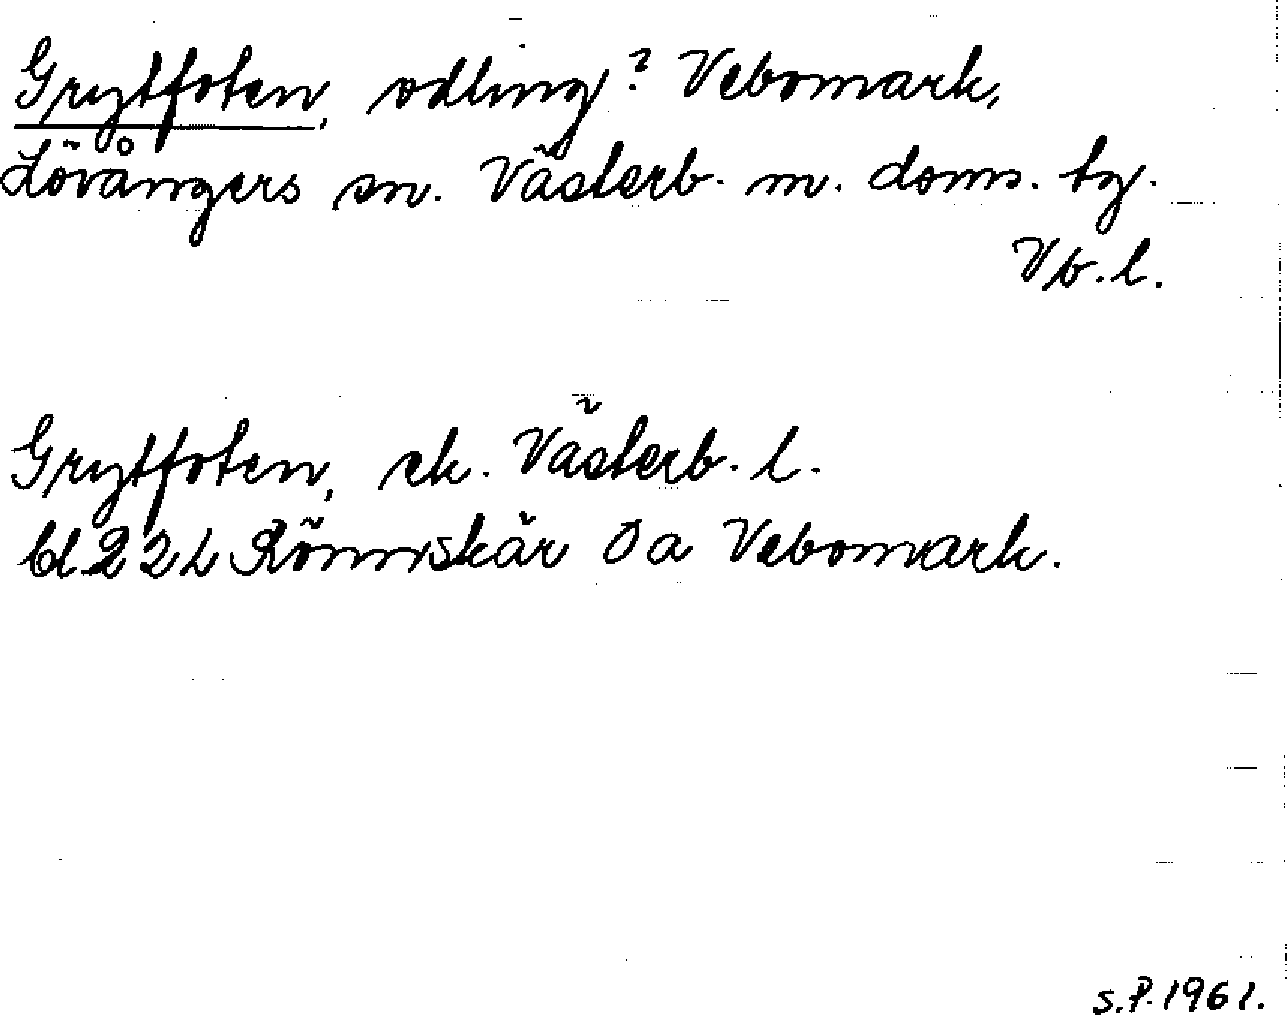 Grytfoten, odling? Vebomark,
Lövångers sn. Västerb. m. doms. tg.
Vb. l.
Grytfoten, ek. Västerb. l.
bl. 22 L Rönnskär Öa Vebomark.
S.P. 1961.